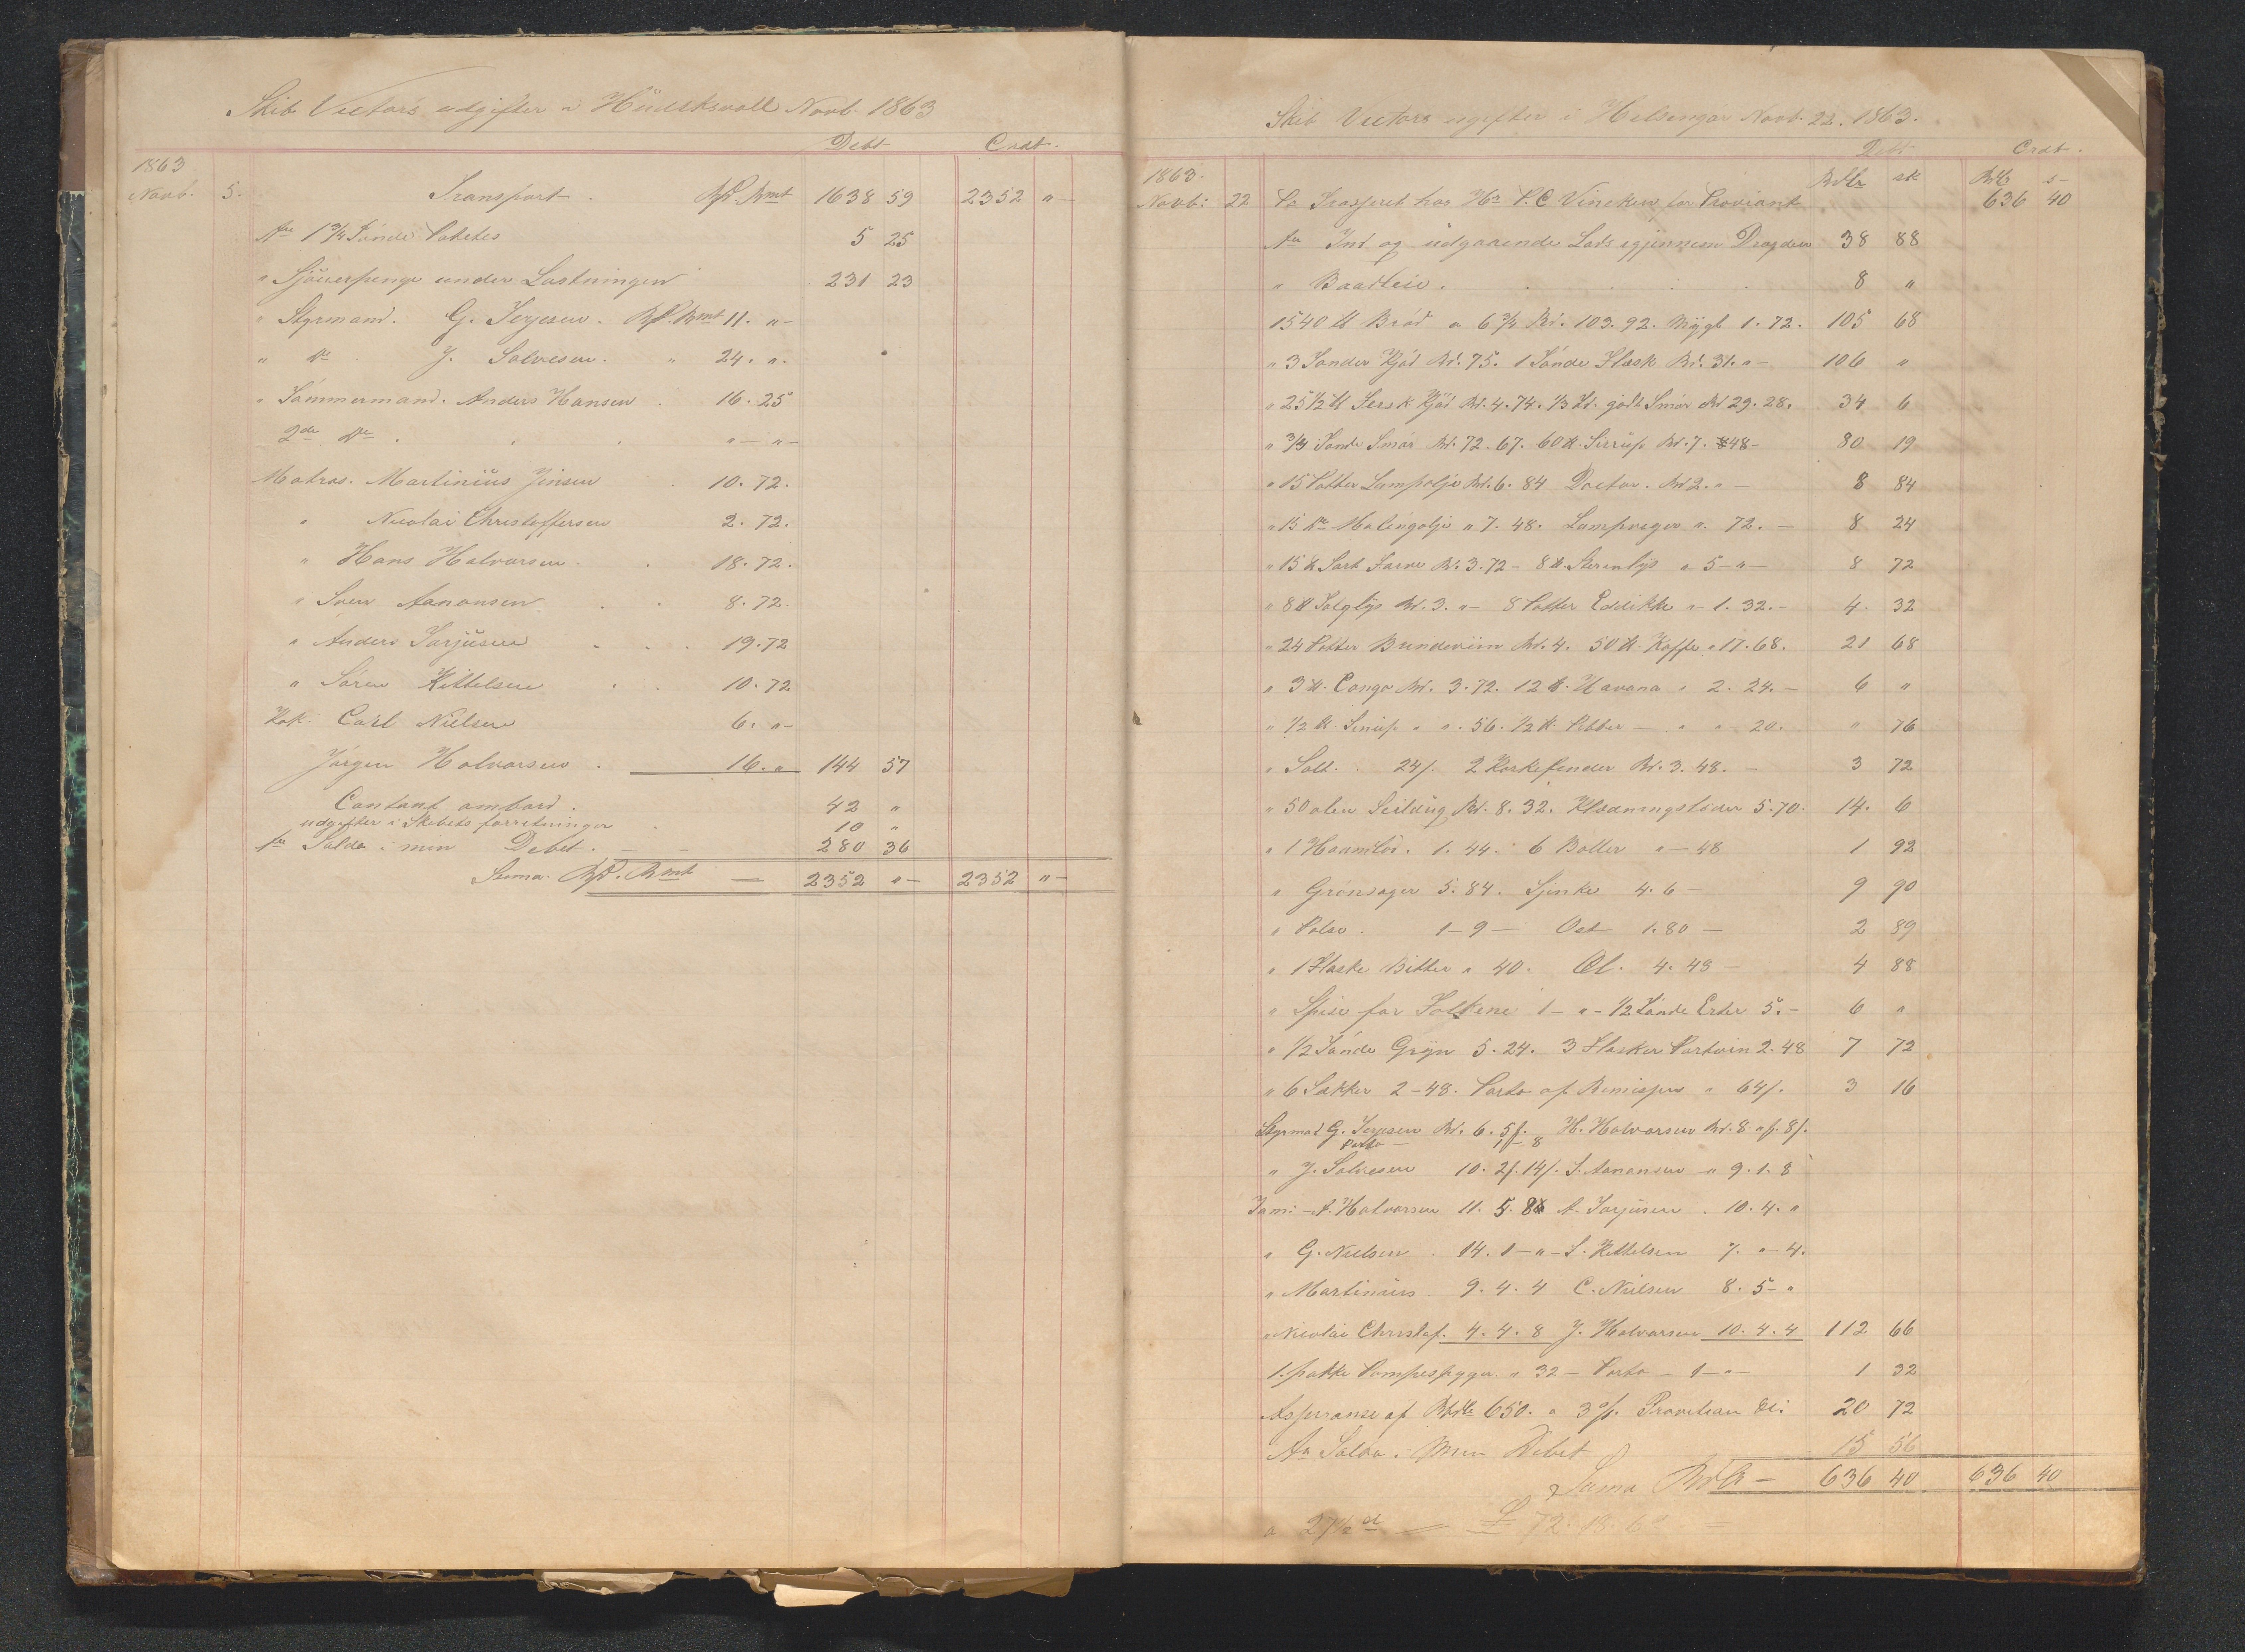 Skib Victors udgifter i Hüdeksvall Novb. 1863
Debt Crdt.
1863
Novb. 5. Transport . Rd. Rmt 1638 59 2352 "-
1 3/4 Tönde Potetes 5 25
" Sjouerpenge under Lastningen 231 23
" Styrmand. G. Terjesen. Rd. Rmt 11. "-
" Do . J. Salvesen. " 24. ".
" Tömmermand. Anders Hansen . 16. 25
2de Do . . . "- "-
Matros. Martinius Jensen . 10. 72.
" Nicolai Christoffersen 2. 72.
" Hans Halvorsen . . 18. 72.
" Sven Aanonsen . . 8. 72.
" Anders Torjüsen . . . 19. 72
" Sören Kittelsen . . 10. 72
Kok. Carl Nielsen 6. "-
Jörgen Halvorsen . 16. " 144 57
Contant ombord . 42 "
udgifter i Skibets forretninger . 10 "
Saldo i min Debet . - - 280 36
Suma. Rd. Rmt — 2352 "- 2352 "-
Skib Victors ugifter i Helsingör Novb. 22. 1863.
Debt Crdt.
1863. Rdlr sk Rdlr s-
Novb: 22 Pr Trasseret hos Hr P. C Vincken for Proviant 636 40
Ind og üdgaaende Lods igjennem Dragden 38 88
" Baadleie . . . . 8 "
1540 ℔ Bröd a 6 3/4 Rd. 103. 92. Mygt 1. 72. 105 68
" 3 Tönder Kjöd Rd. 75. 1 Tönde Flæsk Rd. 31. "- 106 "
" 25 1/2 ℔ Fersk Kjöd Rd. 4. 74. 1/3 godt Smör Rd 29. 28. 34 6
" 3/4 Tönde Smör Rd. 72. 67. 60 ℔. Sirrup Rd. 7. 48- 80 19
" 15 Potter Lampolje Rd. 6. 84 Doctor. Rd 2. "- 8 84
" 15 Do Malingolje " 7. 48. Lampveger ". 72. - 8 24
" 15 ℔ Sort Farve Rd. 3. 72 - 8 ℔. Sterinlys " 5 - "- 8 72
" 8 ℔ Talglys Rd. 3. "- 8 Potter Eddikke "- 1. 32. - 4. 32
" 24 Potter Brendeviin Rd. 4. 50 ℔. Kaffe " 17. 68. 21 68
" 3 ℔. Congo Rd. 3. 72. 12 ℔. Havana " 2. 24. - 6 "
" 1/2 ℔. Sinüp " ". 56. 1/2 ℔. Pebber - " " 20. " 76
" Salt. . 24/. 2 Korkefender Rd. 3. 48. - 3 72
" 50 alen Seildüg Rd. 8. 32. Klædningsloder 5. 70. 14. 6
" 1 1. 44. 6 Boller "- 48 1 92
" Grönsager 5. 84. Sjinke 4. 6 - 9 90
" Pölse . 1 - 9 - Ost 1. 80 - 2 89
" 1 Flaske Bitter " 40. Öl. 4. 48 - 4 88
" Spise for Folkene 1 - "- 1/2 Tönde Erter 5. - 6 "
" 1/2 Tönde Gryn 5. 24. 3 Flasker Portvin 2. 48 7 72
" 6 Sækker 2 - 48. Porto af Remisser " 64/. 3 16
Styrmd G. Terjesen Rd. 6. 5/. H. Halvorsen Rd. 8 "/. 8/.
Porto - 1 - 8
" J. Salvesen 10. 2/. 14/. S. Aanonsen " 9. 1. 8
Töm: - A. Halvorsen 11. 5. 8 A. Torjüsen . 10. 4. "
" G. Nielsen . 14. 1 - " - S. Kittelsen 7. "- 4.
" Martinius 9. 4. 4 C. Nielsen 8. 5 - "
" Nicolai Christof. 4. 4. 8 J. Halvorsen 10. 4. 4 112 66
1. pakke Pompespyger. " 32 - Porto - 1 - "- 1 32
Assuranse af Rdlr 650. a 3 %. Provision 20 72
Pr Saldo. Min Debet 15 56
Suma Rdlr - 636 40 636 40
a 27 1/2 — £ 72. 18. 6